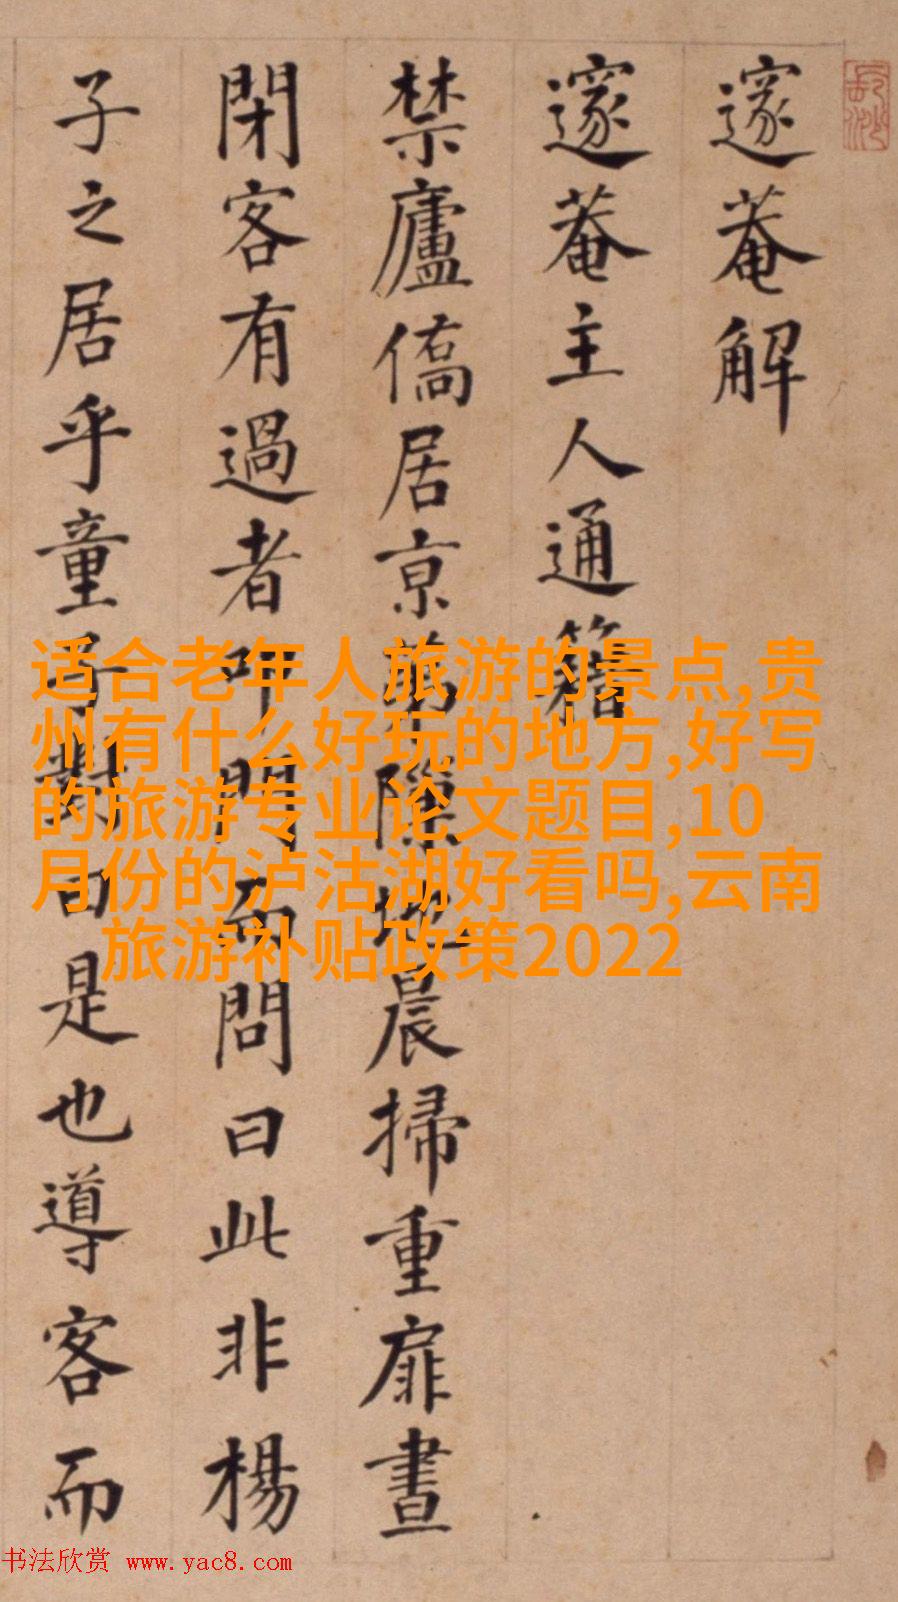 邃菴解
邃菴主人通籍
禁廬僑居京隙地晨掃重扉晝
閉客有過者叩門而問曰此非楊
子之居乎童子對曰是也導客而
适合老年人旅游的景点,贵
州有什么好玩的地方,好写
的旅游专业论文题目,10
月份的泸沽湖好看吗,云南
旅游补贴政策2022
书法欣赏 www.yac8.com